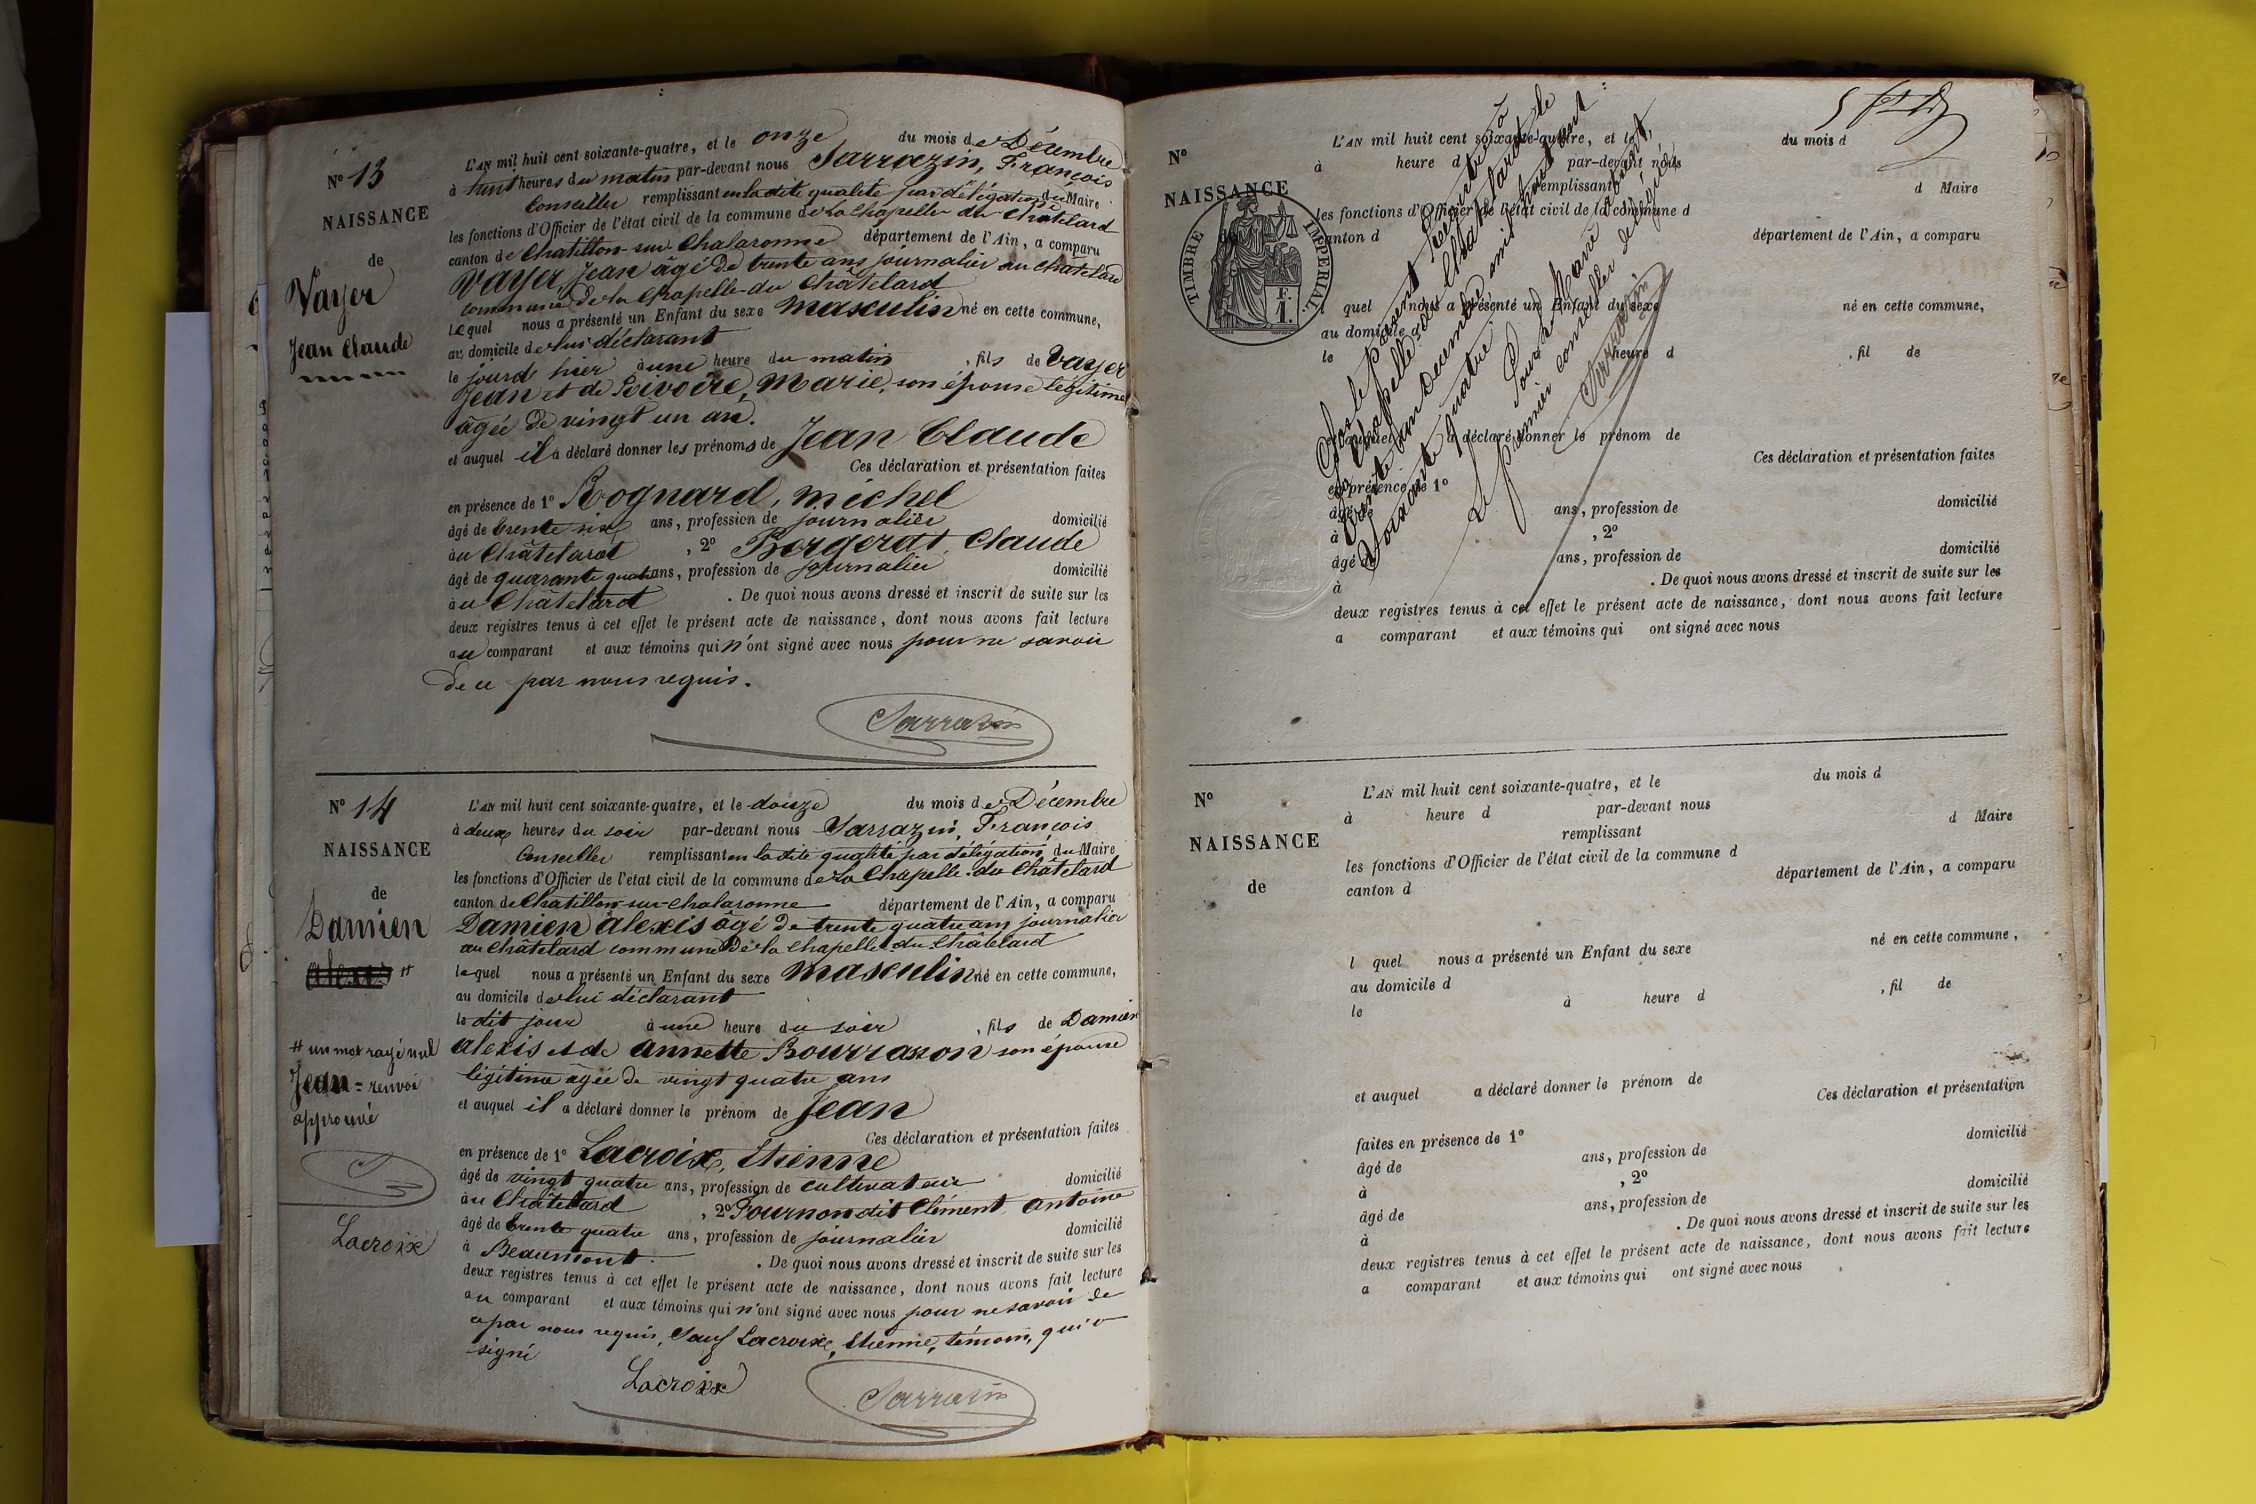 N° 13
NAISSANCE
de
Vayer
Jean Claude
L'AN mil huit cent soixante-quatre, et le onze du mois de Décembre
à huit heures du matin par-devant nous Sarrazin, François
Conseiller remplissant en la dite qualité par délégation du Maire
les fonctions d'Officier de l'état civil de la commune de La Chapelle du Châtelard
canton de Chatillon-sur-Chalaronne département de l'Ain, a comparu
Vayer, Jean âgé de trente ans journalier au Châtelard
commune de la Chapelle-du Châtelard
lequel nous a présenté un Enfant du sexe masculin né en cette commune,
au domicile de lui déclarant
le jour d'hier à une heure du matin, fils de Vayer
Jean et de Rivoire, Marie, son épouse légitime
âgée de vingt un an.
et auquel il a déclaré donner les prénoms de Jean Claude
Ces déclaration et présentation faites
en présence de 1° Rognard, Michel
âgé de trente six ans, profession de journalier domicilié
au Châtelard, 2° Borgerat, Claude
âgé de quarante quatre ans, profession de journalier domicilié
au Châtelard. De quoi nous avons dressé et inscrit de suite sur les
deux registres tenus à cet effet le présent acte de naissance, dont nous avons fait lecture
au comparant et aux témoins qui n'ont signé avec nous pour ne savoir
de ce par nous requis.
Sarrazin
N° 14
NAISSANCE
de
Damien
alexis #
# un mot rayé nul
Jean = renvoi
approuvé
S
Lacroix
L'AN mil huit cent soixante-quatre, et le douze du mois de Décembre
à deux heures du soir par-devant nous Sarrazin, François
Conseiller remplissant en la dite qualité par délégation du Maire
les fonctions d'Officier de l'état civil de la commune de La Chapelle-du Châtelard
canton de Chatillon-sur-Chalaronne département de l'Ain, a comparu
Damien alexis âgé de trente quatre ans journalier
au Châtelard commune de la Chapelle du Châtelard
lequel nous a présenté un Enfant du sexe masculin né en cette commune,
au domicile de lui déclarant
le dit jour à une heure du soir, fils de Damien
alexis et de annette Bourrason son épouse
légitime âgée de vingt quatre ans
et auquel il a déclaré donner le prénom de Jean
Ces déclaration et présentation faites
en présence de 1° Lacroix, Etienne
âgé de vingt quatre ans, profession de cultivateur domicilié
au Châtelard, 2° Fournon dit Clément, antoine
âgé de trente quatre ans, profession de journalier domicilié
à Beaumont. De quoi nous avons dressé et inscrit de suite sur les
deux registres tenus à cet effet le présent acte de naissance, dont nous avons fait lecture
au comparant et aux témoins qui n'ont signé avec nous pour ne savoir de
ce par nous requis, Sauf Lacroix, Etienne, témoin, qui a
signé
Lacroix
Sarrazin
N°
NAISSANCE
de
TIMBRE IMPERIAL
F.
1.
L'AN mil huit cent soixante-quatre, et le du mois d
à heure d par-devant nous
remplissant d Maire
les fonctions d'Officier de l'état civil de la commune d
canton d département de l'Ain, a comparu
l quel nous a présenté un Enfant du sexe né en cette commune,
au domicile d
le heure d, fil de
et auquel a déclaré donner le prénom de
Ces déclaration et présentation faites
en présence de 1°
âgé de ans, profession de domicilié
à, 2°
âgé de ans, profession de domicilié
à. De quoi nous avons dressé et inscrit de suite sur les
deux registres tenus à cet effet le présent acte de naissance, dont nous avons fait lecture
a comparant et aux témoins qui ont signé avec nous
Clos le présent Registre à
La Chapelle-du Châtelard le
trente un Décembre mil huit cent
soixante quatre.
Pour le Maire absent
Le premier conseiller délégué
Sarrazin
N°
NAISSANCE
de
L'AN mil huit cent soixante-quatre, et le du mois d
à heure d par-devant nous
remplissant d Maire
les fonctions d'Officier de l'état civil de la commune d
canton d département de l'Ain, a comparu
l quel nous a présenté un Enfant du sexe né en cette commune,
au domicile d
le à heure d, fil de
et auquel a déclaré donner le prénom de
Ces déclaration et présentation
faites en présence de 1°
âgé de ans, profession de domicilié
à, 2°
âgé de ans, profession de domicilié
à. De quoi nous avons dressé et inscrit de suite sur les
deux registres tenus à cet effet le présent acte de naissance, dont nous avons fait lecture
a comparant et aux témoins qui ont signé avec nous